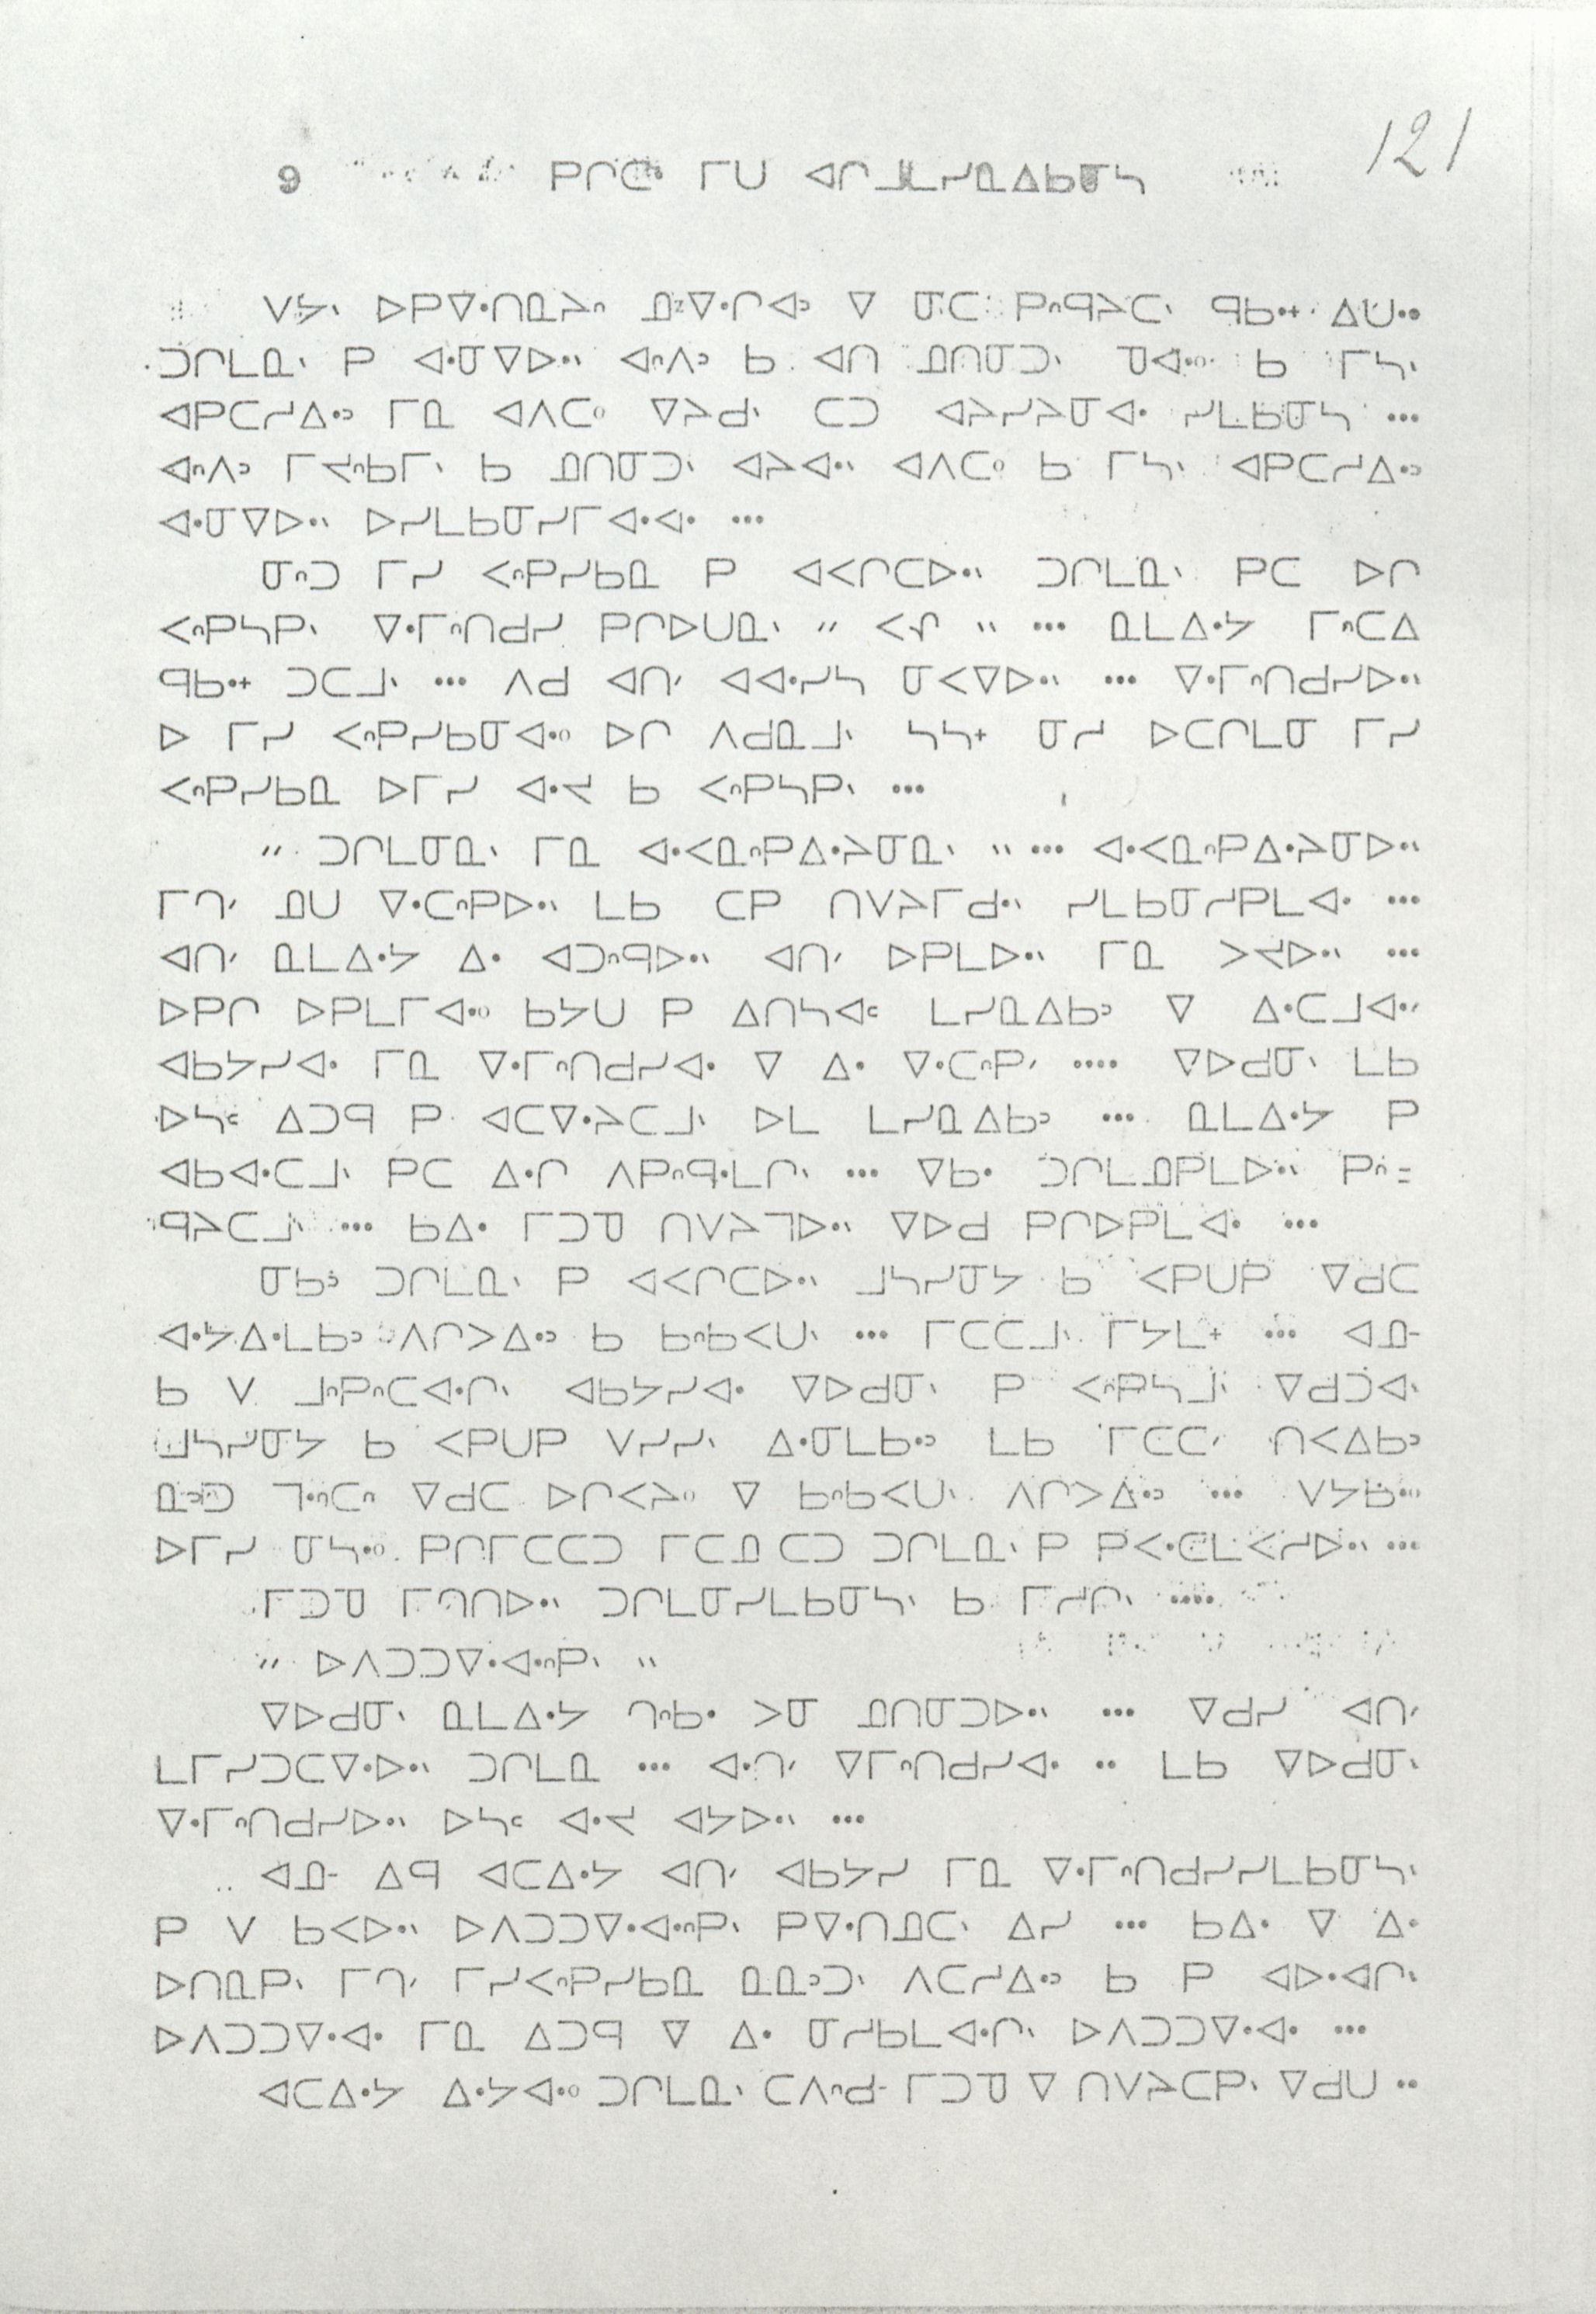 9 ᑭᒋᑕᐤ ᒥᑌ ᐊᒋᒧᒪᓯᓇᐃᑲᓂᓴ 121
ᐯᔭᐠ ᐅᑭᐁᐧᑎᓇᔨᐢ ᓄᐁᐧᒋᐊᐣ ᐁ ᓂᑕ ᑭᐢᑫᔨᑕᐠ ᑫᑲᐧᕀ
ᑐᒋᒪᓇᐠ ᑭ ᐊᐧᓂᐁᐅᐧᐠ ᐊᐢᐱᐣ ᑲ ᐊᑎ ᓄᑎᓂᑐᐠ ᓀᐊᐧᐤ ᑲ ᒥᓴᐠ
ᐊᑭᑕᓱᐃᐧᐣ ᒥᓇ ᐊᐱᑕᐤ ᐁᔨᑯᐠ ᑕᑐ ᐊᔨᓯᔨᓂᐊᐧ ᓯᒪᑲᓂᓴ ...
ᐊᐢᐱᐣ ᒥᐸᐢᑲᒥᐠ ᑲ ᓄᑎᓂᑐᐠ ᐊᔨᐊᐧᐠ ᐊᐱᑕᐤ ᑲ ᒥᓴᐠ ᐊᑭᑕᓱᐃᐧᐣ
ᐊᐧᓂᐁᐅᐧᐠ ᐅᓯᒪᑲᓂᓯᒥᐊᐧᐊᐧ ...
ᓂᐢᑐ ᒥᓯ ᐸᐢᑭᓯᑲᓇ ᑭ ᐊᐸᒋᑕᐅᐧᐠ ᑐᒋᒪᓇᐠ ᑭᑕ ᐅᒋ
ᐸᐢᑭᓴᑭᐠ ᐁᐧᒥᐢᑎᑯᓯ ᑭᒋᐅᑌᓇᐠ " ᐸᕒᐃ " ... ᓇᒪᐃᐧᔭ ᒥᐢᑕᐃ
ᑫᑲᐧᕀ ᑐᑕᒧᐠ ... ᐱᑯ ᐊᑎᐟ ᐊᐊᐧᓯᓴ ᓂᐸᐁᐅᐧᐠ ... ᐁᐧᒥᐢᑎᑯᓯᐅᐧᐠ
ᐅ ᒥᓯ ᐸᐢᑭᓯᑲᓂᐊᐧᐤ ᐅᒋ ᐱᑯᓇᒧᐠ ᓴᓴᕀ ᓂᓱ ᐅᑕᒋᒪᓂ ᒥᓯ
ᐸᐢᑭᓯᑲᓇ ᐅᒥᓯ ᐊᐧᐸ ᑲ ᐸᐢᑭᓴᑭᐠ ...
" ᑐᒋᒪᓂᓇᐠ ᒥᓇ ᐊᐧᐸᓇᐢᑭᐃᐧᔨᓂᓇᐠ " ... ᐊᐧᐸᓇᐢᑭᐃᐧᔨᓂᐅᐧᐠ
ᒥᒋᐟ ᓄᑌ ᐁᐧᑕᐢᑭᐅᐧᐠ ᒪᑲ ᑕᑭ ᑎᐯᔨᒥᑯᐧᐠ ᓯᒪᑲᓂᓱᑭᒪᐊᐧ ...
ᐊᑎᐟ ᓇᒪᐃᐧᔭ ᐃᐧ ᐊᑐᐢᑫᐅᐧᐠ ᐊᑎᐟ ᐅᑭᒪᐅᐧᐠ ᒥᓇ ᐳᔪᐅᐧᐠ ...
ᐅᑭᒋ ᐅᑭᒪᒥᐊᐧᐤ ᑲᔭᑌ ᑭ ᐃᑎᓴᐊᒼ ᒪᓯᓇᐃᑲᐣ ᐁ ᐃᐧᑕᒧᐊᐧᐟ
ᐊᑲᔭᓯᐊᐧ ᒥᓇ ᐁᐧᒥᐢᑎᑯᓯᐊᐧ ᐁ ᐃᐧ ᐁᐧᑕᐢᑭᐟ .... ᐁᐅᑯᓂᐠ ᒪᑲ
ᐅᓴᒼ ᐃᑐᑫ ᑭ ᐊᑕᐁᐧᔨᑕᒧᐠ ᐅᒪ ᒪᓯᓇᐃᑲᐣ ... ᓇᒪᐃᐧᔭ ᑭ
ᐊᑲᐊᐧᑕᒧᐠ ᑭᑕ ᐃᐧᒋ ᐱᑭᐢᑫᐧᒪᒋᐠ ... ᐁᑲᐧ ᑐᒋᒪᓄᑭᒪᐅᐧᐠ ᑭᐢ=
ᑫᔨᑕᒧᐠ ... ᑲᐃᐧ ᒥᑐᓀ ᑎᐯᔨᒣᐅᐧᐠ ᐁᐅᑯ ᑭᒋᐅᑭᒪᐊᐧ ...
ᓂᑲᐣ ᑐᒋᒪᓇᐠ ᑭ ᐊᐸᒋᑕᐅᐧᐠ ᒧᓴᓯᓂᔭ ᑲ ᐸᑭᑌᑭ ᐁᑯᑕ
ᐊᐧᔭᐃᐧᒪᑲᐣ ᐱᒋᐳᐃᐧᐣ ᑲ ᑲᐢᑲᐸᑌᐠ ... ᒥᑕᑕᒧᐠ ᒥᔭᒪᕀ ... ᐊᓄ-
ᑲ ᐯ ᒧᐢᑭᐢᑕᐊᐧᒋᐠ ᐊᑲᔭᓯᐊᐧ ᐁᐅᑯᓂᐠ ᑭ ᐸᐢᑭᓴᒧᐠ ᐁᑯᑐᐊᐠ
ᒧᓴᓯᓂᔭ ᑲ ᐸᑭᑌᑭ ᐯᓯᓯᐠ ᐃᐧᓂᒪᑲᐧᐣ ᒪᑲ ᒥᑕᑕᐟ ᑎᐸᐃᑲᐣ
ᐁᑯᑕ ᐅᒋᐸᔨᐤ ᐁ ᑲᐢᑲᐸᑌᐠ ᐱᒋᐳᐃᐧᐣ ... ᐯᔭᑲᐧᐤ
ᐅᒥᓯ ᓂᓴᐧᐤ ᑭᒋᒥᑕᑕᑐ ᒥᑕᓄ ᑕᑐ ᑐᒋᒪᓇᐠ ᑭ ...
ᒥᑐᓀ ᒥᒋᑎᐅᐧᐠ ᑐᒋᒪᓂᓯᒪᑲᓂᓴᐠ ᑲ ᒥᓱᒋᐠ ....
" ᐅᐱᑐᑐᐁᐧᐊᐧᐢᑭᐠ "
ᐁᐅᑯᓂᐠ ᓇᒪᐃᐧᔭ ᒋᐢᑲᐧ ᐳᓂ ᓄᑎᓂᑐᐅᐧᐠ ... ᐁᑯᓯ ᐊᑎᐟ
ᒪᒥᓯᑐᑕᐁᐧᐅᐧᐠ ᑐᒋᒪᓇ ... ᐊᐧᑎᐟ ᐁᒥᐢᑎᑯᓯᐊᐧ .. ᒪᑲ ᐁᐅᑯᓂᐠ
ᐁᐧᒥᐢᑎᑯᓯᐅᐧᐠ ᐅᓴᒼ ᐊᐧᐸ ᐊᔭᐅᐧᐠ ...
.. ᐊᓄ- ᐃᑫ ᐊᑕᐃᐧᔭ ᐊᑎᐟ ᐊᑲᔭᓯ ᒥᓇ ᐁᐧᒥᐢᑎᑯᓯᓯᒪᑲᓂᓴᐠ
ᑭ ᐯ ᑲᐸᐅᐧᐠ ᐅᐱᑐᑐᐁᐧᐊᐧᐢᑭᐠ ᑭᐁᐧᑎᓄᑕᐠ ᐃᓯ ... ᑲᐃᐧ ᐁ ᐃᐧ
ᐅᑎᓇᑭᐠ ᒥᒋᐟ ᒥᓯᐸᐢᑭᓯᑲᓇ ᓇᓇᐣᑐᐠ ᐱᑕᓱᐃᐧᐣ ᑲ ᑭ ᐊᐅᐧᐊᒋᐠ
ᐅᐱᑐᑐᐁᐧᐊᐧ ᒥᓇ ᐃᑐᑫ ᐁ ᐃᐧ ᓂᓱᑲᒪᐊᐧᒋᐠ ᐅᐱᑐᑐᐁᐧᐊᐧ ...
ᐊᑕᐃᐧᔭ ᐃᐧᔭᐊᐧᐤ ᑐᒋᒪᓇᐠ ᑕᐱᐢᑯ- ᒥᑐᓀ ᐁ ᑎᐯᔨᑕᑭᐠ ᐁᑯᑌ ..